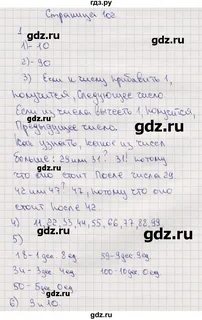 Страница 102
1
1) - 10
2) - 90
3) Если к числу прибавить 1,
получится, Следующее число.
Если из числа вычесть 1, получится,
Предыдущее число.
Как узнать, какое из чисел
больше: 29 или 31? 31! потому
что оно стоит После числа 29
42 или 47? 47, потому что оно
стоит После 42.
4) 11, 22, 33, 44, 55, 66, 77, 88, 99
5)
18 - 1 дес 8 ед 59 - 5 дес 9 ед
34 - 3 дес 4 ед 100 - 10 дес, 0 ед
50 - 5 дес, 0 ед
6) 9 и 10
gdz.ru
gdz.ru
gdz.ru
gdz.ru
gdz.ru
gdz.ru
gdz.ru